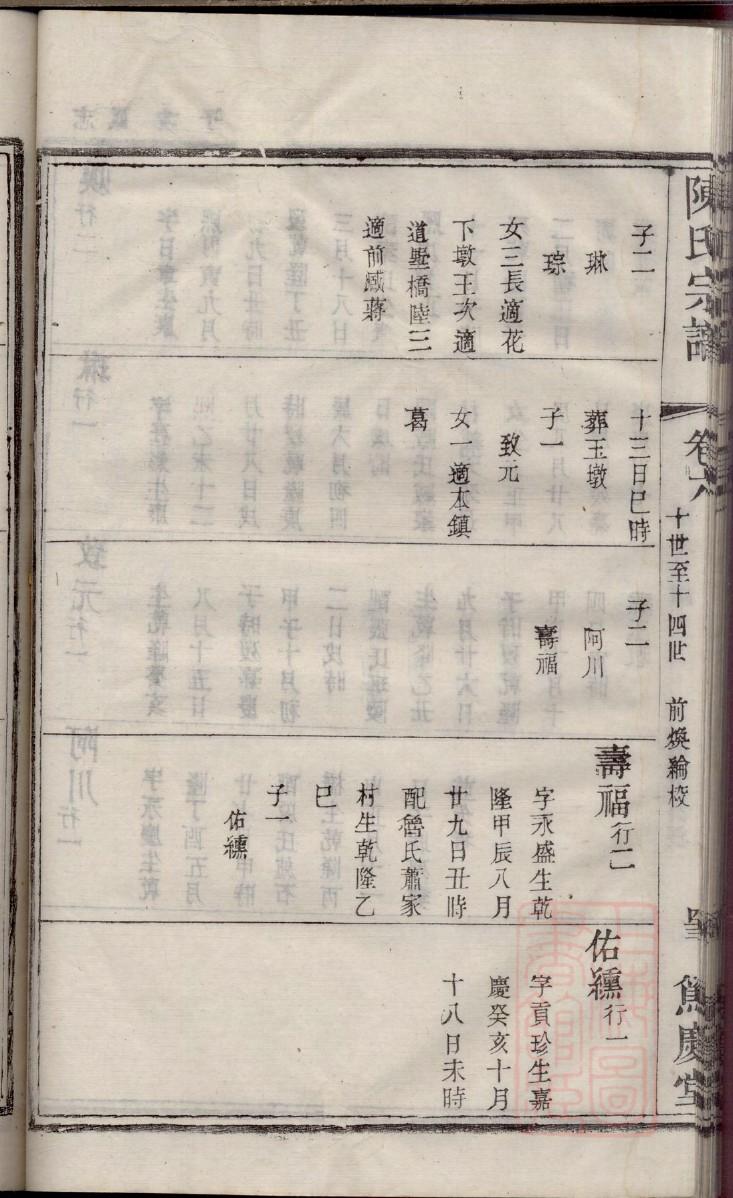 陳氏宗譜
卷六
十世至十四世
前煥綸校
篤慶堂
子二
琳
琮
女三長適花
下墩王次適
道墅橋陸三
適前臧蔣
十三日巳時
葬玉墩
子一
致元
女一適本鎮
葛
子二
阿川
壽福
壽福行二
字永盛生乾
隆甲辰八月
廿九日丑時
配魯氏蕭家
村生乾隆乙
巳
子一
佑繻
佑繻行一
字貢珍生嘉
慶癸亥十月
十八日未時